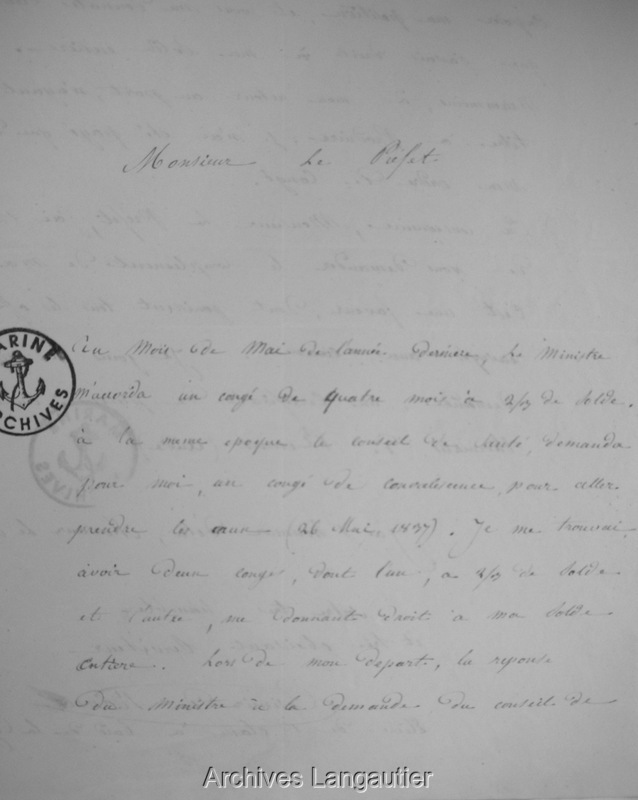 Monsieur Le Préfet
Au Mois de Mai de l'année dernière Le Ministre
m'accorda un congé de quatre mois à 2/3 de Solde.
à la meme epoque le conseil de Santé, demanda
pour moi, un congé de convalescence, pour aller
prendre les eaux (26 Mai, 1837). Je me trouvai,
avoir deux congé, dont l'un, a 2/3 de Solde
et l'autre, me donnant droit à ma Solde
Entière. Lors de mon depart, la reponse
du Ministre à la demande du conseil de
MARINE
ARCHIVES
Archives Langautier